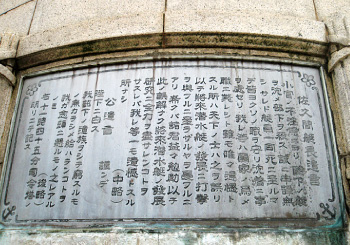 佐久間艇長遺言
小官ノ不注意ニヨリ陛下ノ艇
ヲ沈メ部下ヲ殺ス誠ニ申譯無シ
サレド艇員一同死ニ至ルマデ
皆ヨクソノ職ヲ守リ沈着ニ事
ヲ処セリ我レ等ハ國家ノ爲メ
職ニ斃レシト雖モ唯々遺憾ト
スル所ハ天下ノ士ハ之ヲ誤リ
以テ將來潜水艇ノ發展ニ打撃
ヲ與フルニ至ラザルヤヲ憂フルニ
アリ希クハ諸君益々勉勵以テ
此ノ誤解ナク將來潜水艇ノ發展
研究ニ全力ヲ盡クサレンコトヲ
サスレバ我レ等一モ遺憾トスル
所ナシ (中略)
公遺言 謹ンデ
陛下ニ白ス
我部下ノ遺族ヲシテ窮スルモ
ノ無カラシメ給ハランコトヲ
我ガ念頭ニ懸ルモノ之レアル
ノミ (後略)